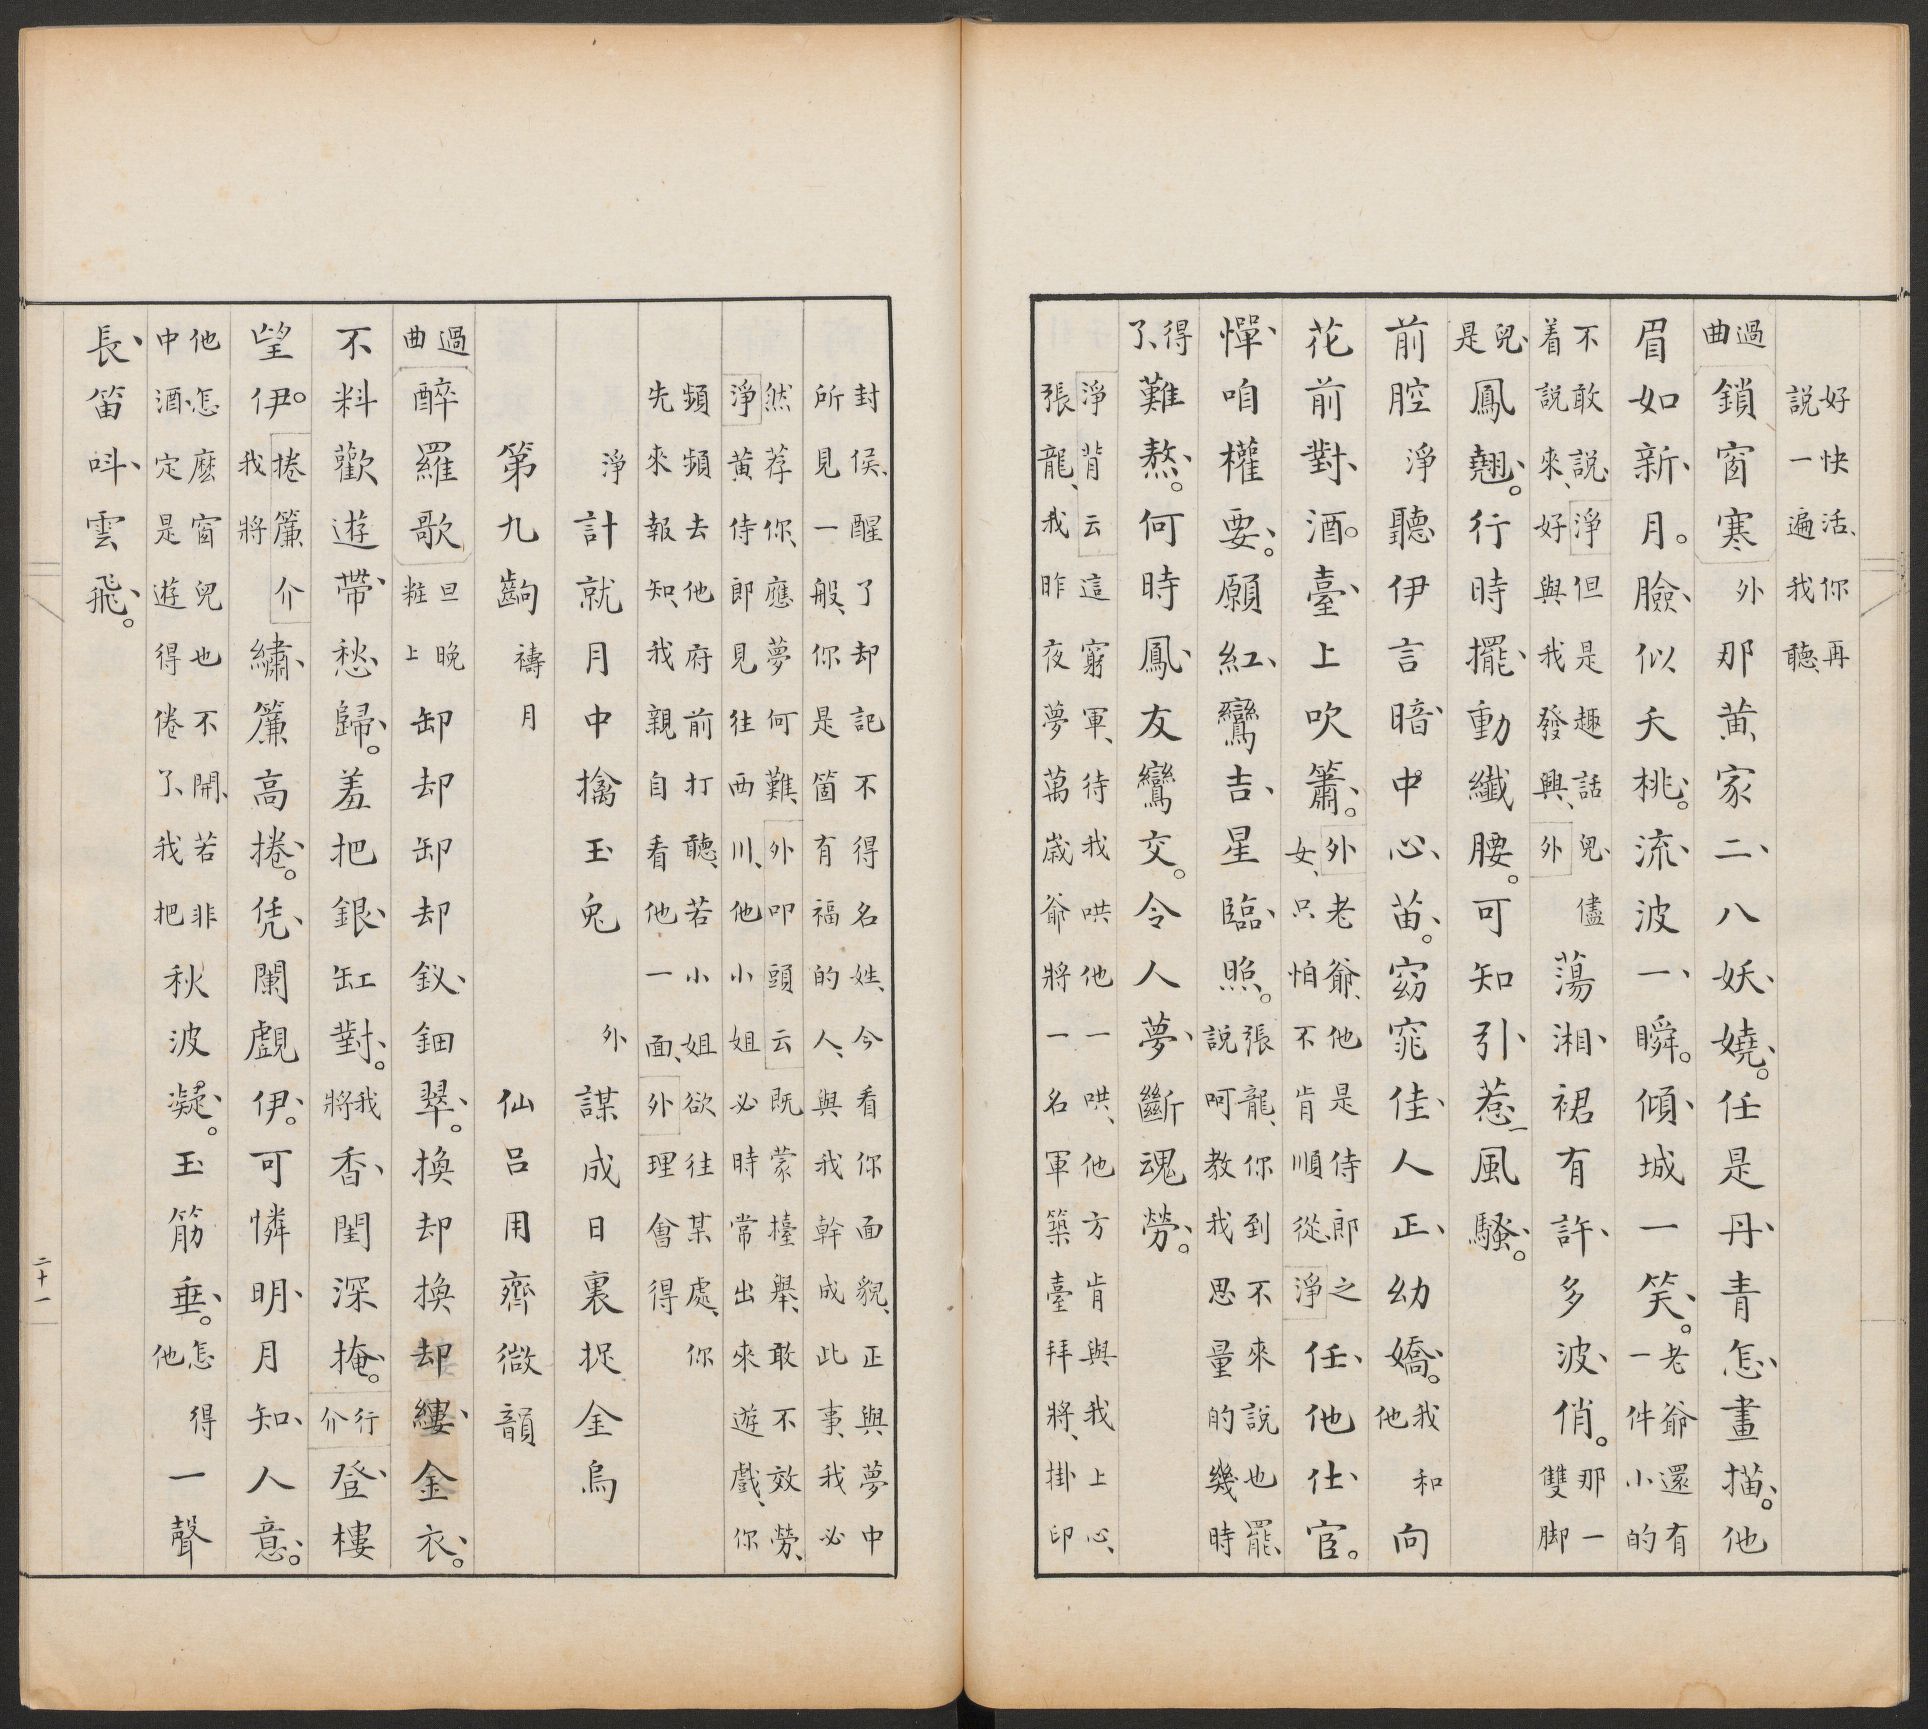 好快活、你再說一遍我聽、
過曲 鎖窗寒 外 那黃家二八妖嬈。任是丹青怎畫描。他
眉如新月。臉似夭桃。流波一瞬。傾城一笑。老爺還有一件小的
不敢說、淨 但是趣話兒儘着說來、好與我發興、外 蕩湘裙有許多波俏。那一雙脚
兒是鳳翹。行時擺動纖腰。可知引惹風騷。
前腔 淨 聽伊言暗中心苗。窈窕佳人正幼嬌。我和他向
花前對酒。臺上吹簫。外 老爺、他是侍郎之女、只怕不肯順從、淨 任他仕宦。
憚咱權要。願紅鸞吉星臨照。張龍、你到不來說也罷、說呵教我思量的幾時
得了、難熬。何時鳳友鸞交。令人夢斷魂勞。
淨背云 這窮軍、待我哄他一哄、他方肯與我上心、張龍、我昨夜夢萬歲爺將一名軍築臺拜將、掛印
封侯、醒了却記不得名姓、今看你面貌、正與夢中所見一般、你是箇有福的人、與我幹成此事、我必
然荐你、應夢何難、外叩頭云 既蒙擡舉、敢不效勞、淨 黃侍郎見往西川、他小姐必時常出來遊戲、你
頻頻去他府前打聽、若小姐欲往某處、你先來報知、我親自看他一面、外 理會得
淨 計就月中擒玉兔 外 謀成日裏捉金烏
第九齣 禱月 仙呂用齊微韻
過曲 醉羅歌 旦晚粧上 卸却卸却釵鈿翠。換却換却縷金衣。
不料歡遊帶愁歸。羞把銀缸對。我將香閨深掩。行介 登樓
望伊。捲簾介 我將繡簾高捲。凭闌覷伊。可憐明月知人意。
他怎麽窗兒也不開、若非中酒、定是遊得倦了、我把秋波凝。玉筋垂。怎得他一聲
長笛呌雲飛。
二十一